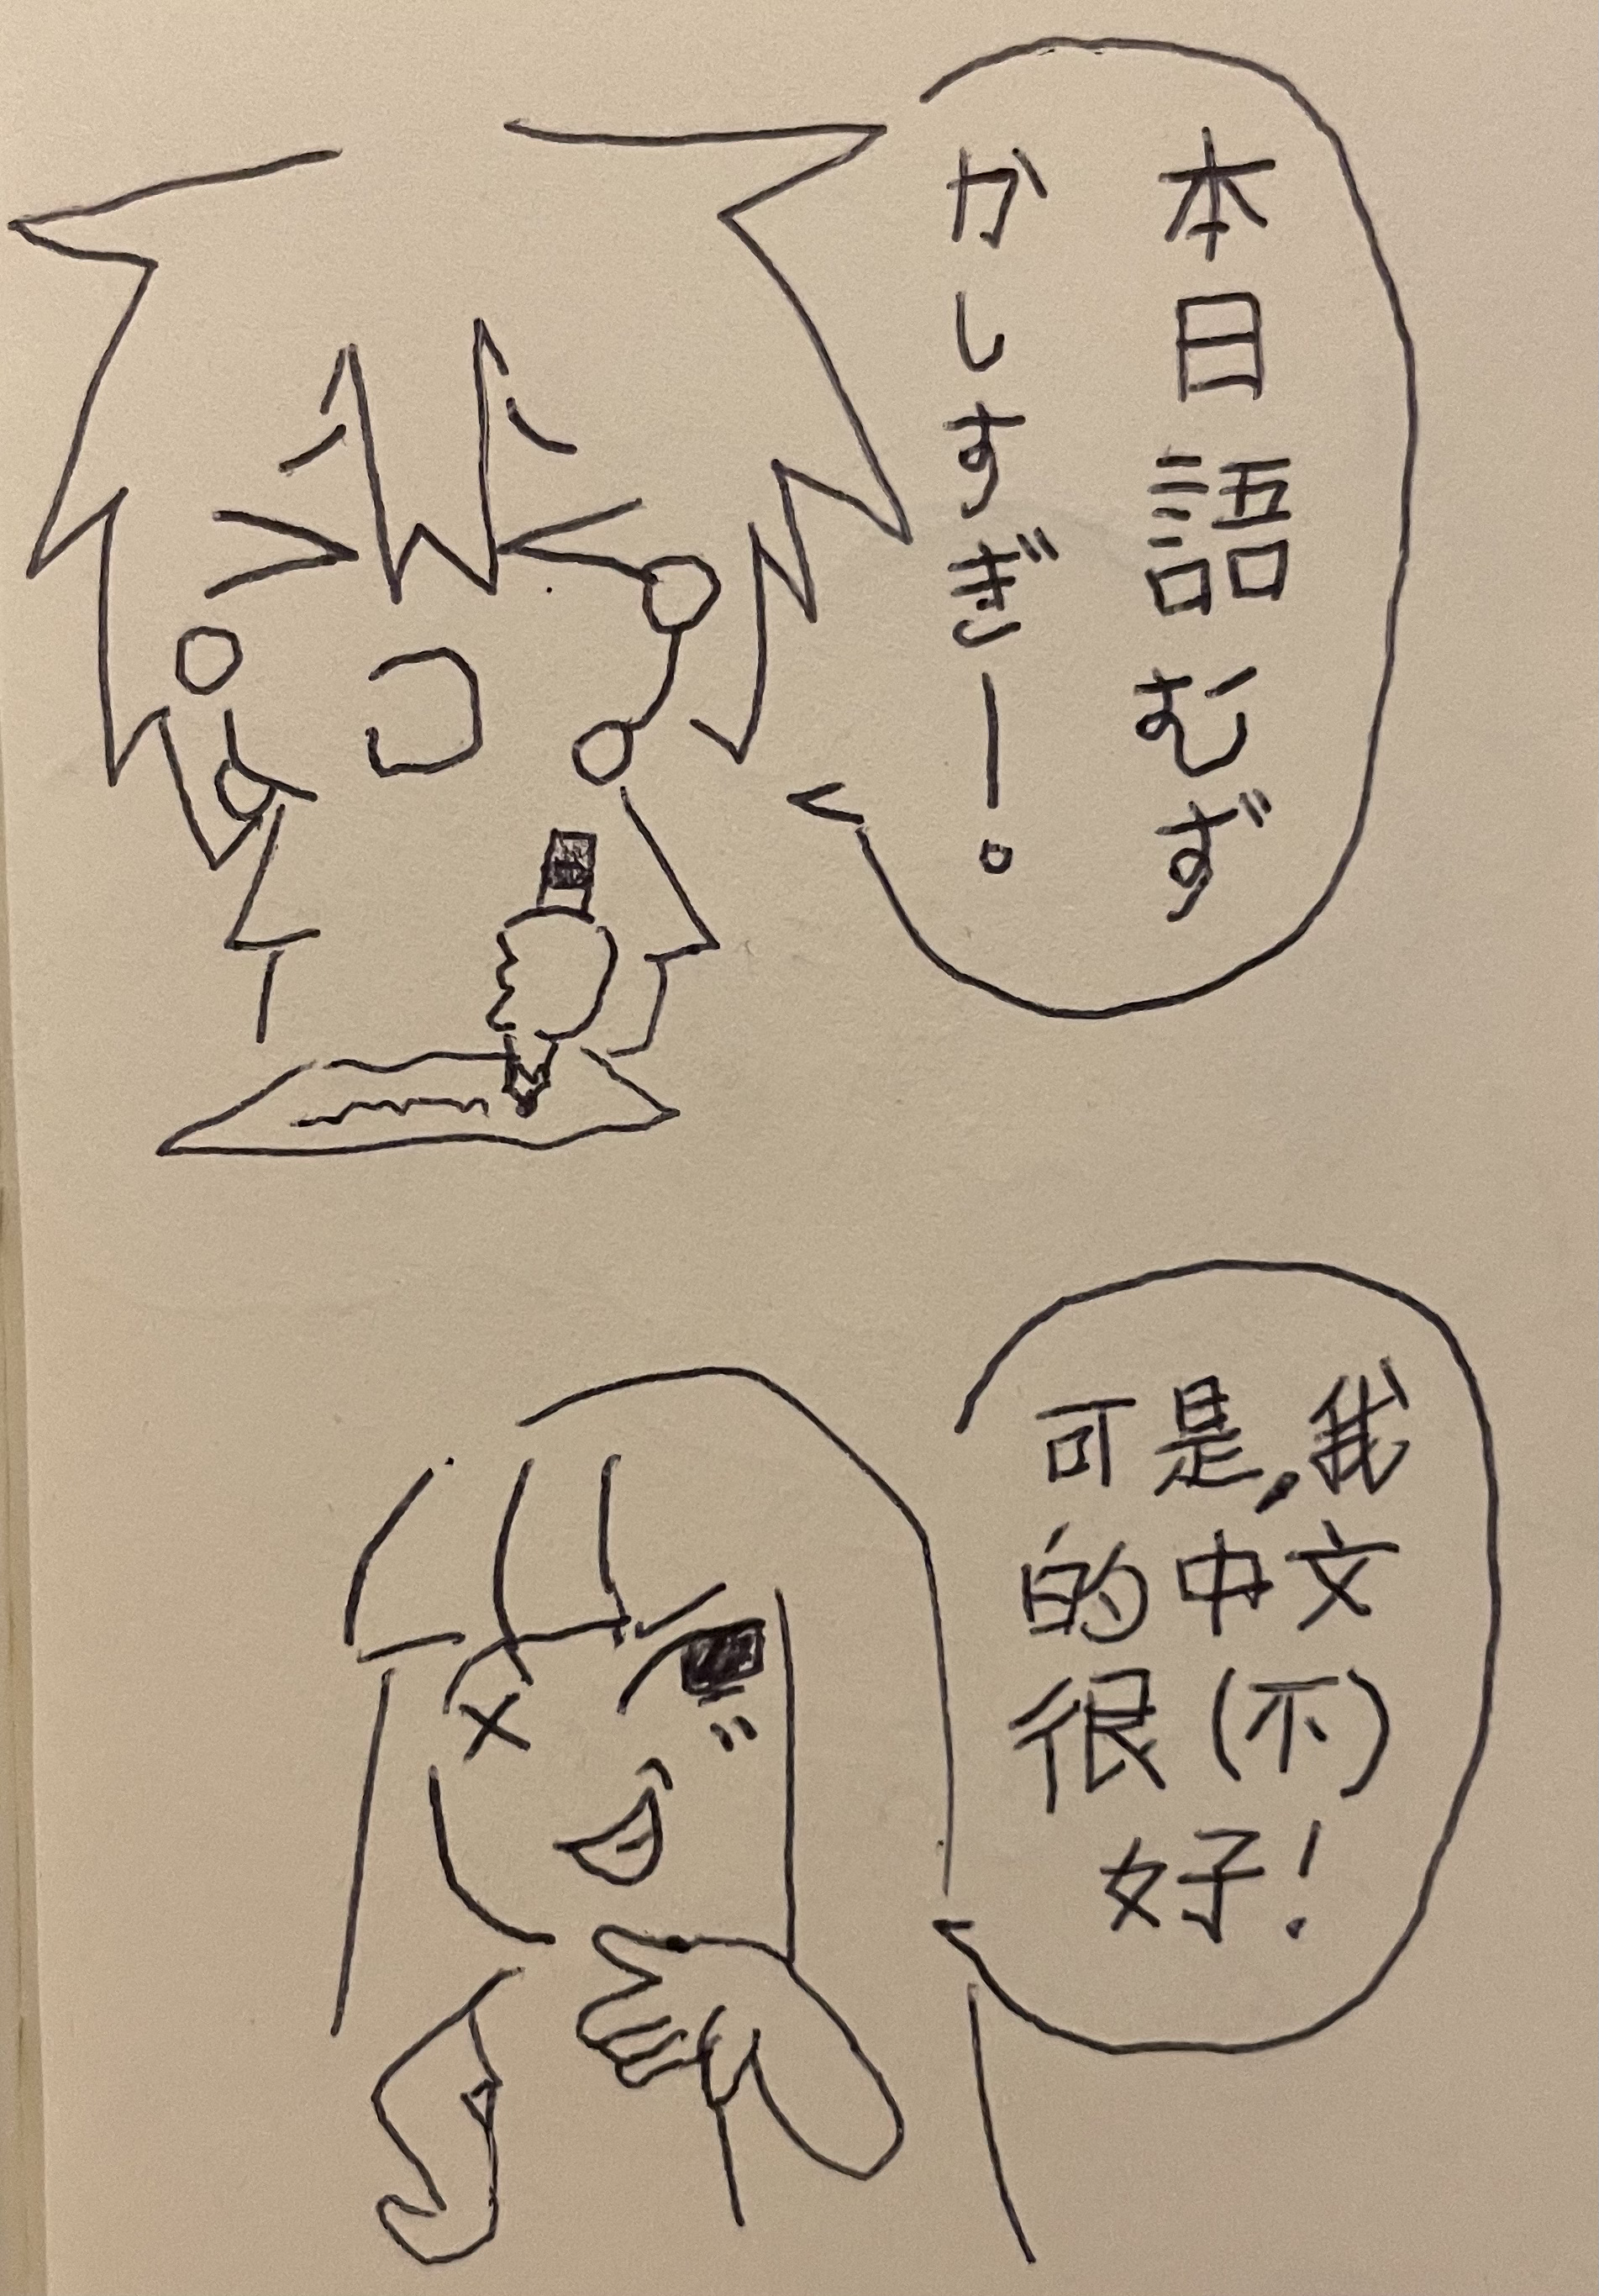 本日語むず
かしすぎー。
可是,我
的中文
很(不)
好!